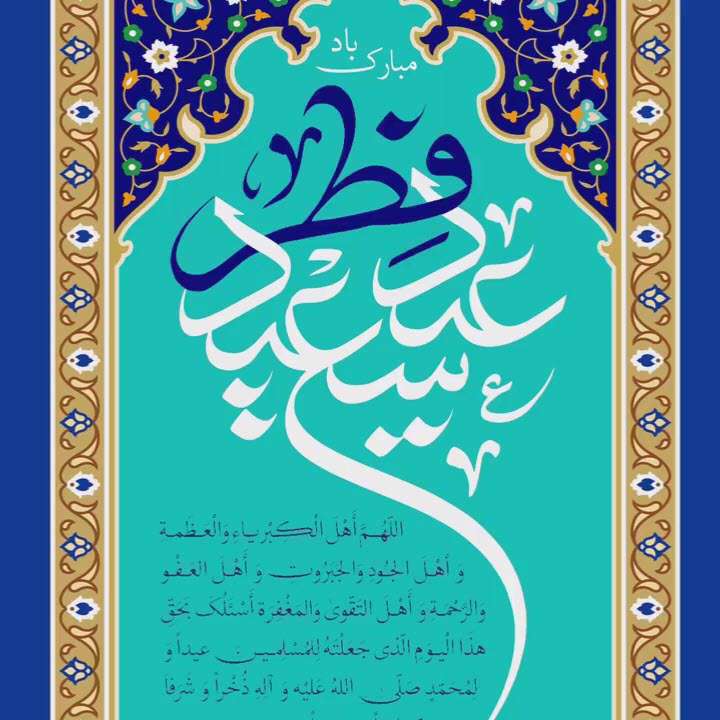 مبارک باد
عید سعید فطر
اللَّهُمَّ أَهْلَ الْكِبْرِياءِ وَالْعَظَمَةِ
وَ أَهْلَ الجُودِ وَالجَبَرُوتِ وَ أَهْلَ العَفْوِ
وَالرَّحْمَةِ وَ أَهْلَ التَقْوىٰ وَالمَغْفِرَةِ أَسْئَلُكَ بَحَقِّ
هذَا الْيَومِ الَّذى جَعَلْتَهُ لِلمُسْلِمينَ عيداً وَ
لِمُحَمَّدٍ صَلَّى اللهُ عَلَيْهِ وَ آلِهِ ذُخْراً وَ شَرَفا